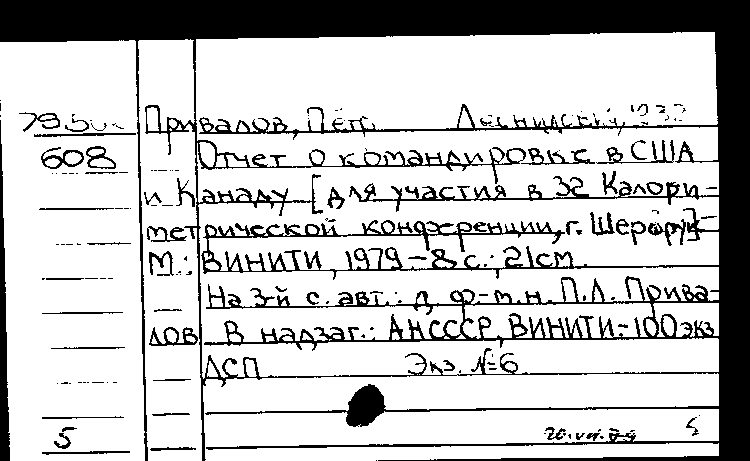 Привалов, Пётр Леонидович, 1932
608 Отчет о командировке в США
и Канаду [для участия в 32 Калори-
метрической конференции, г. Шербрук]-
М.: ВИНИТИ, 1979-8 с.; 21см.
На 3-й с. авт.: д. ф-м.н. П.Л. Прива-
лов В надзаг.: АНСССР, ВИНИТИ-100экз
ДСП Экз. №6
5